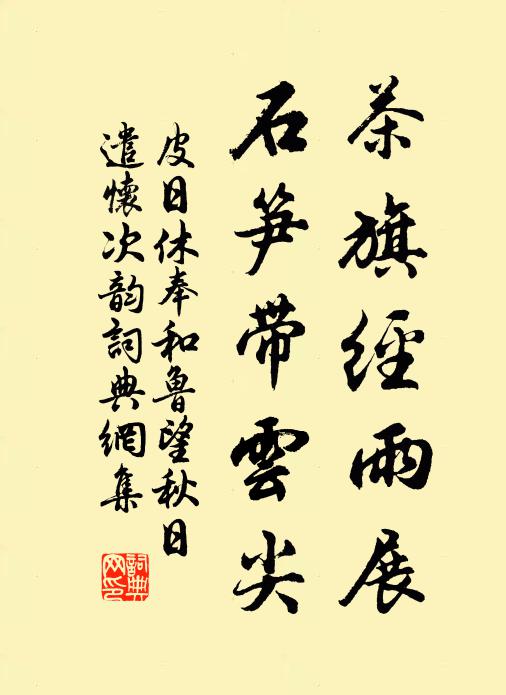 茶旗經雨展
石笋帶雲尖
皮日休奉和魯望秋日
遣懷次韵詞典網集
詞典
网印